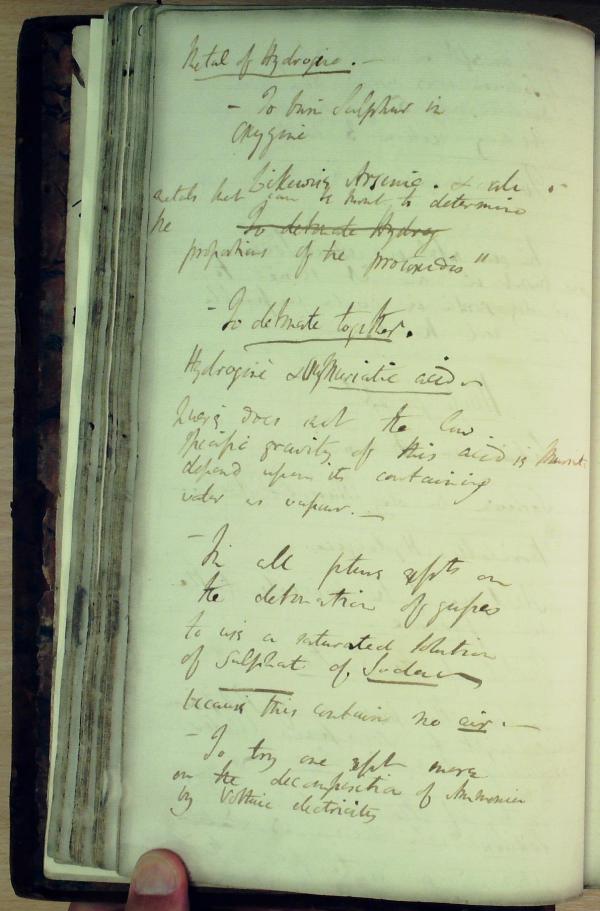 Metal of Hydrogine. -
- To burn Sulphur in
Oxygine
Likewise Arsenic. & all
metals that can be burnt to determine
the To detonate Hydrog
proportions of the protoxides"
- To detonate together.
Hydrogine & OxyMuriatic acid
Query does not the low
specific gravity of this acid is Muriat:
depend upon its containing
water as vapour. -
- In all future expts on
the detonation of gases
to use a saturated solution
of Sulphat of Soda
because this contains no air. -
- To try one expt more
on the decomposition of Ammonia
by Voltaic electricity